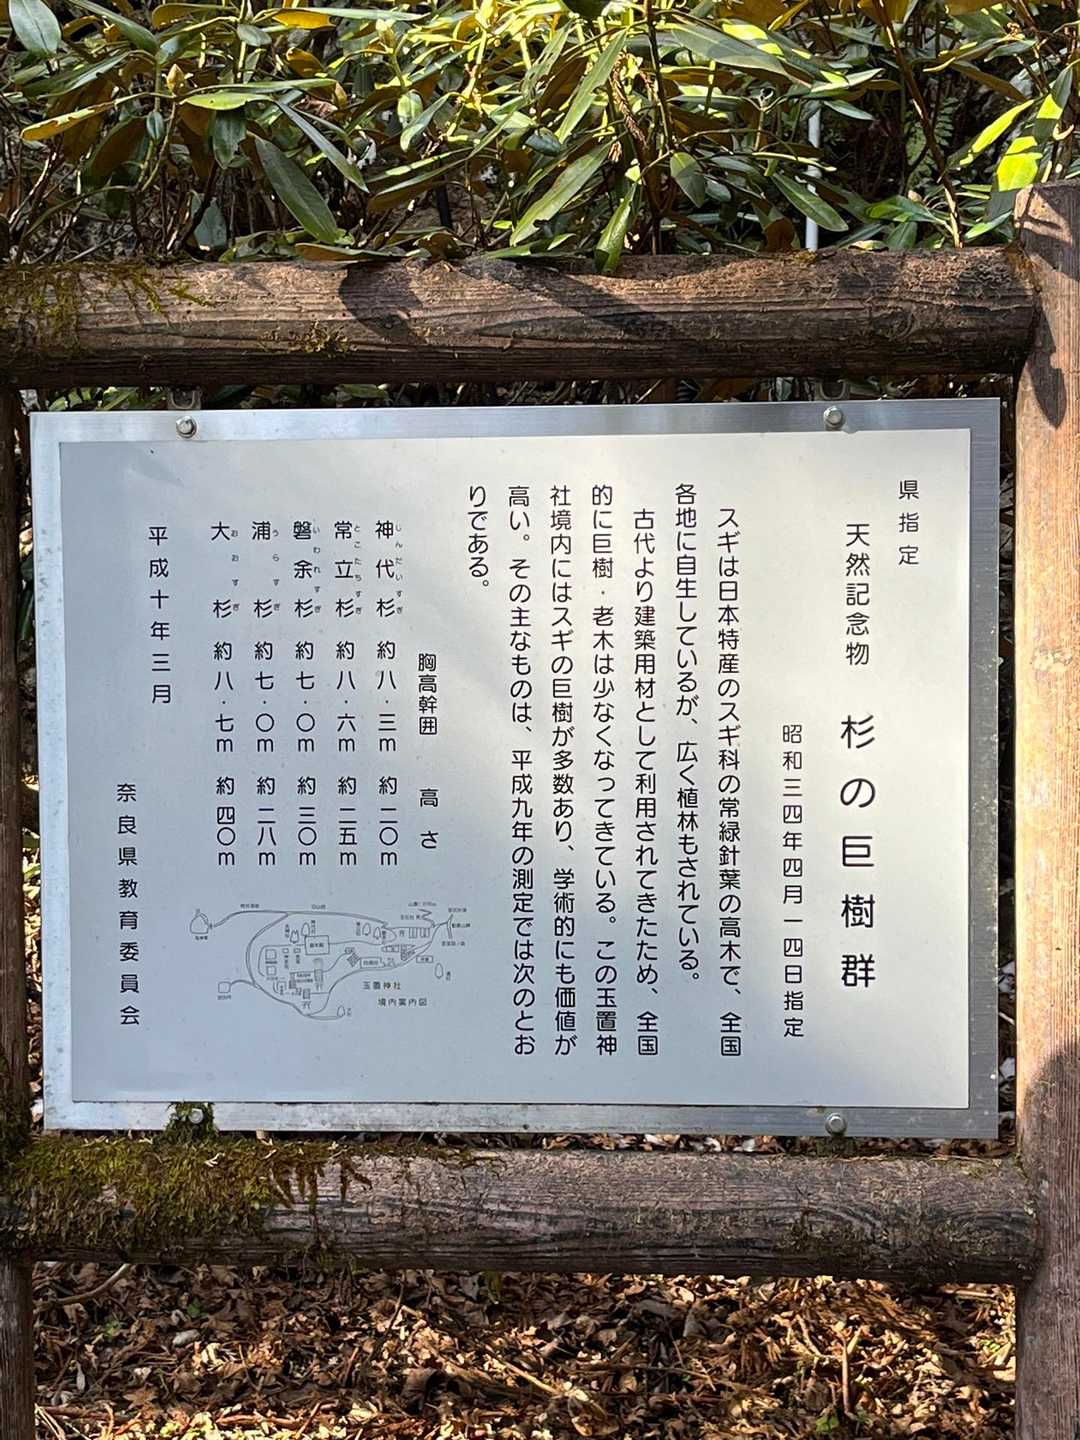 県指定
天然記念物 杉の巨樹群
昭和三四年四月一四日指定
スギは日本特産のスギ科の常緑針葉の高木で、全国
各地に自生しているが、広く植林もされている。
古代より建築用材として利用されてきたため、全国
的に巨樹・老木は少なくなってきている。この玉置神
社境内にはスギの巨樹が多数あり、学術的にも価値が
高い。その主なものは、平成九年の測定では次のとお
りである。
胸高幹囲 高さ
神代杉 じんだいすぎ 約八・三m 約二〇m
常立杉 とこたちすぎ 約八・六m 約二五m
磐余杉 いわれすぎ 約七・〇m 約三〇m
浦杉 うらすぎ 約七・〇m 約二八m
大杉 おおすぎ 約八・七m 約四〇m
平成十年三月
奈良県教育委員会
玉置神社
境内案内図